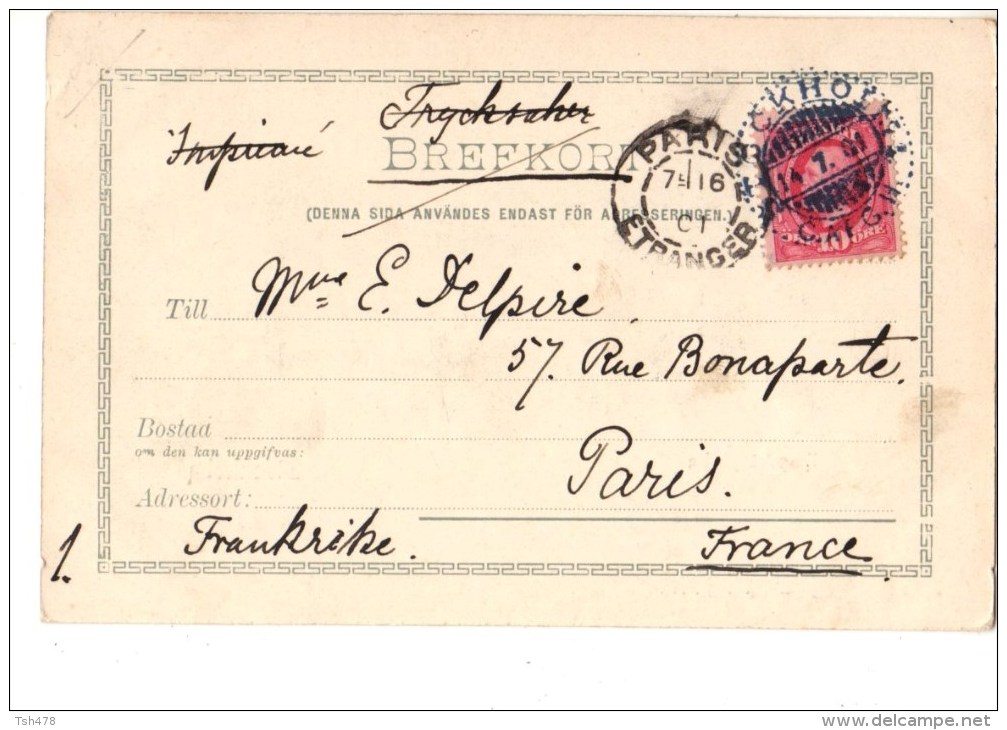 Trycksaker
Imprimé
BREFKORT
(DENNA SIDA ANVÄNDES ENDAST FÖR ADRESSERINGEN.)
PARIS
7E 16
01
ETRANGER
CKHOL
7. 01
ÖRE
Till
Mme E. Delpire
57. Rue Bonaparte.
Bostad
om den kan uppgifvas:
Paris.
Adressort:
Frankrike.
France.
1.
Tsh478
www.delcampe.net